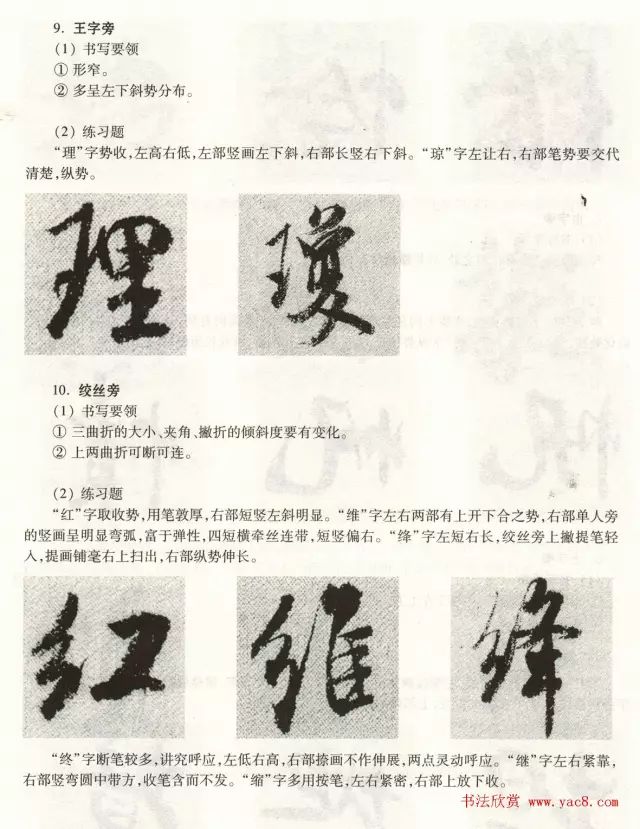 9. 王字旁
(1) 书写要领
① 形窄。
② 多呈左下斜势分布。
(2) 练习题
“理”字势收,左高右低,左部竖画左下斜,右部长竖右下斜。“琼”字左让右,右部笔势要交代
清楚,纵势。
理 瓊
10. 绞丝旁
(1) 书写要领
① 三曲折的大小、夹角、撇折的倾斜度要有变化。
② 上两曲折可断可连。
(2) 练习题
“红”字取收势,用笔敦厚,右部短竖左斜明显。“维”字左右两部有上开下合之势,右部单人旁
的竖画呈明显弯弧,富于弹性,四短横牵丝连带,短竖偏右。“绛”字左短右长,绞丝旁上撇提笔轻
入,提画铺毫右上扫出,右部纵势伸长。
红 维 绛
“终”字断笔较多,讲究呼应,左低右高,右部捺画不作伸展,两点灵动呼应。“继”字左右紧靠,
右部竖弯圆中带方,收笔含而不发。“缩”字多用按笔,左右紧密,右部上放下收。
书法欣赏 www.yac8.com